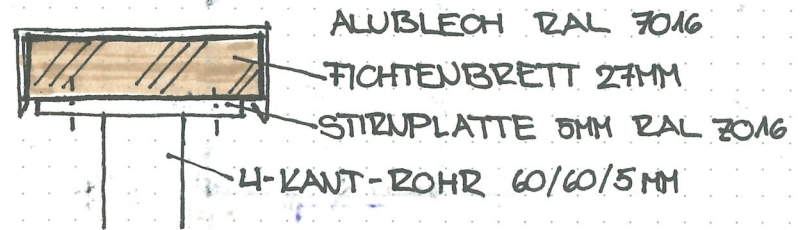 ALUBLECH RAL 7016
FICHTENBRETT 27MM
STIRNPLATTE 5MM RAL 7016
4-KANT-ROHR 60/60/5 MM